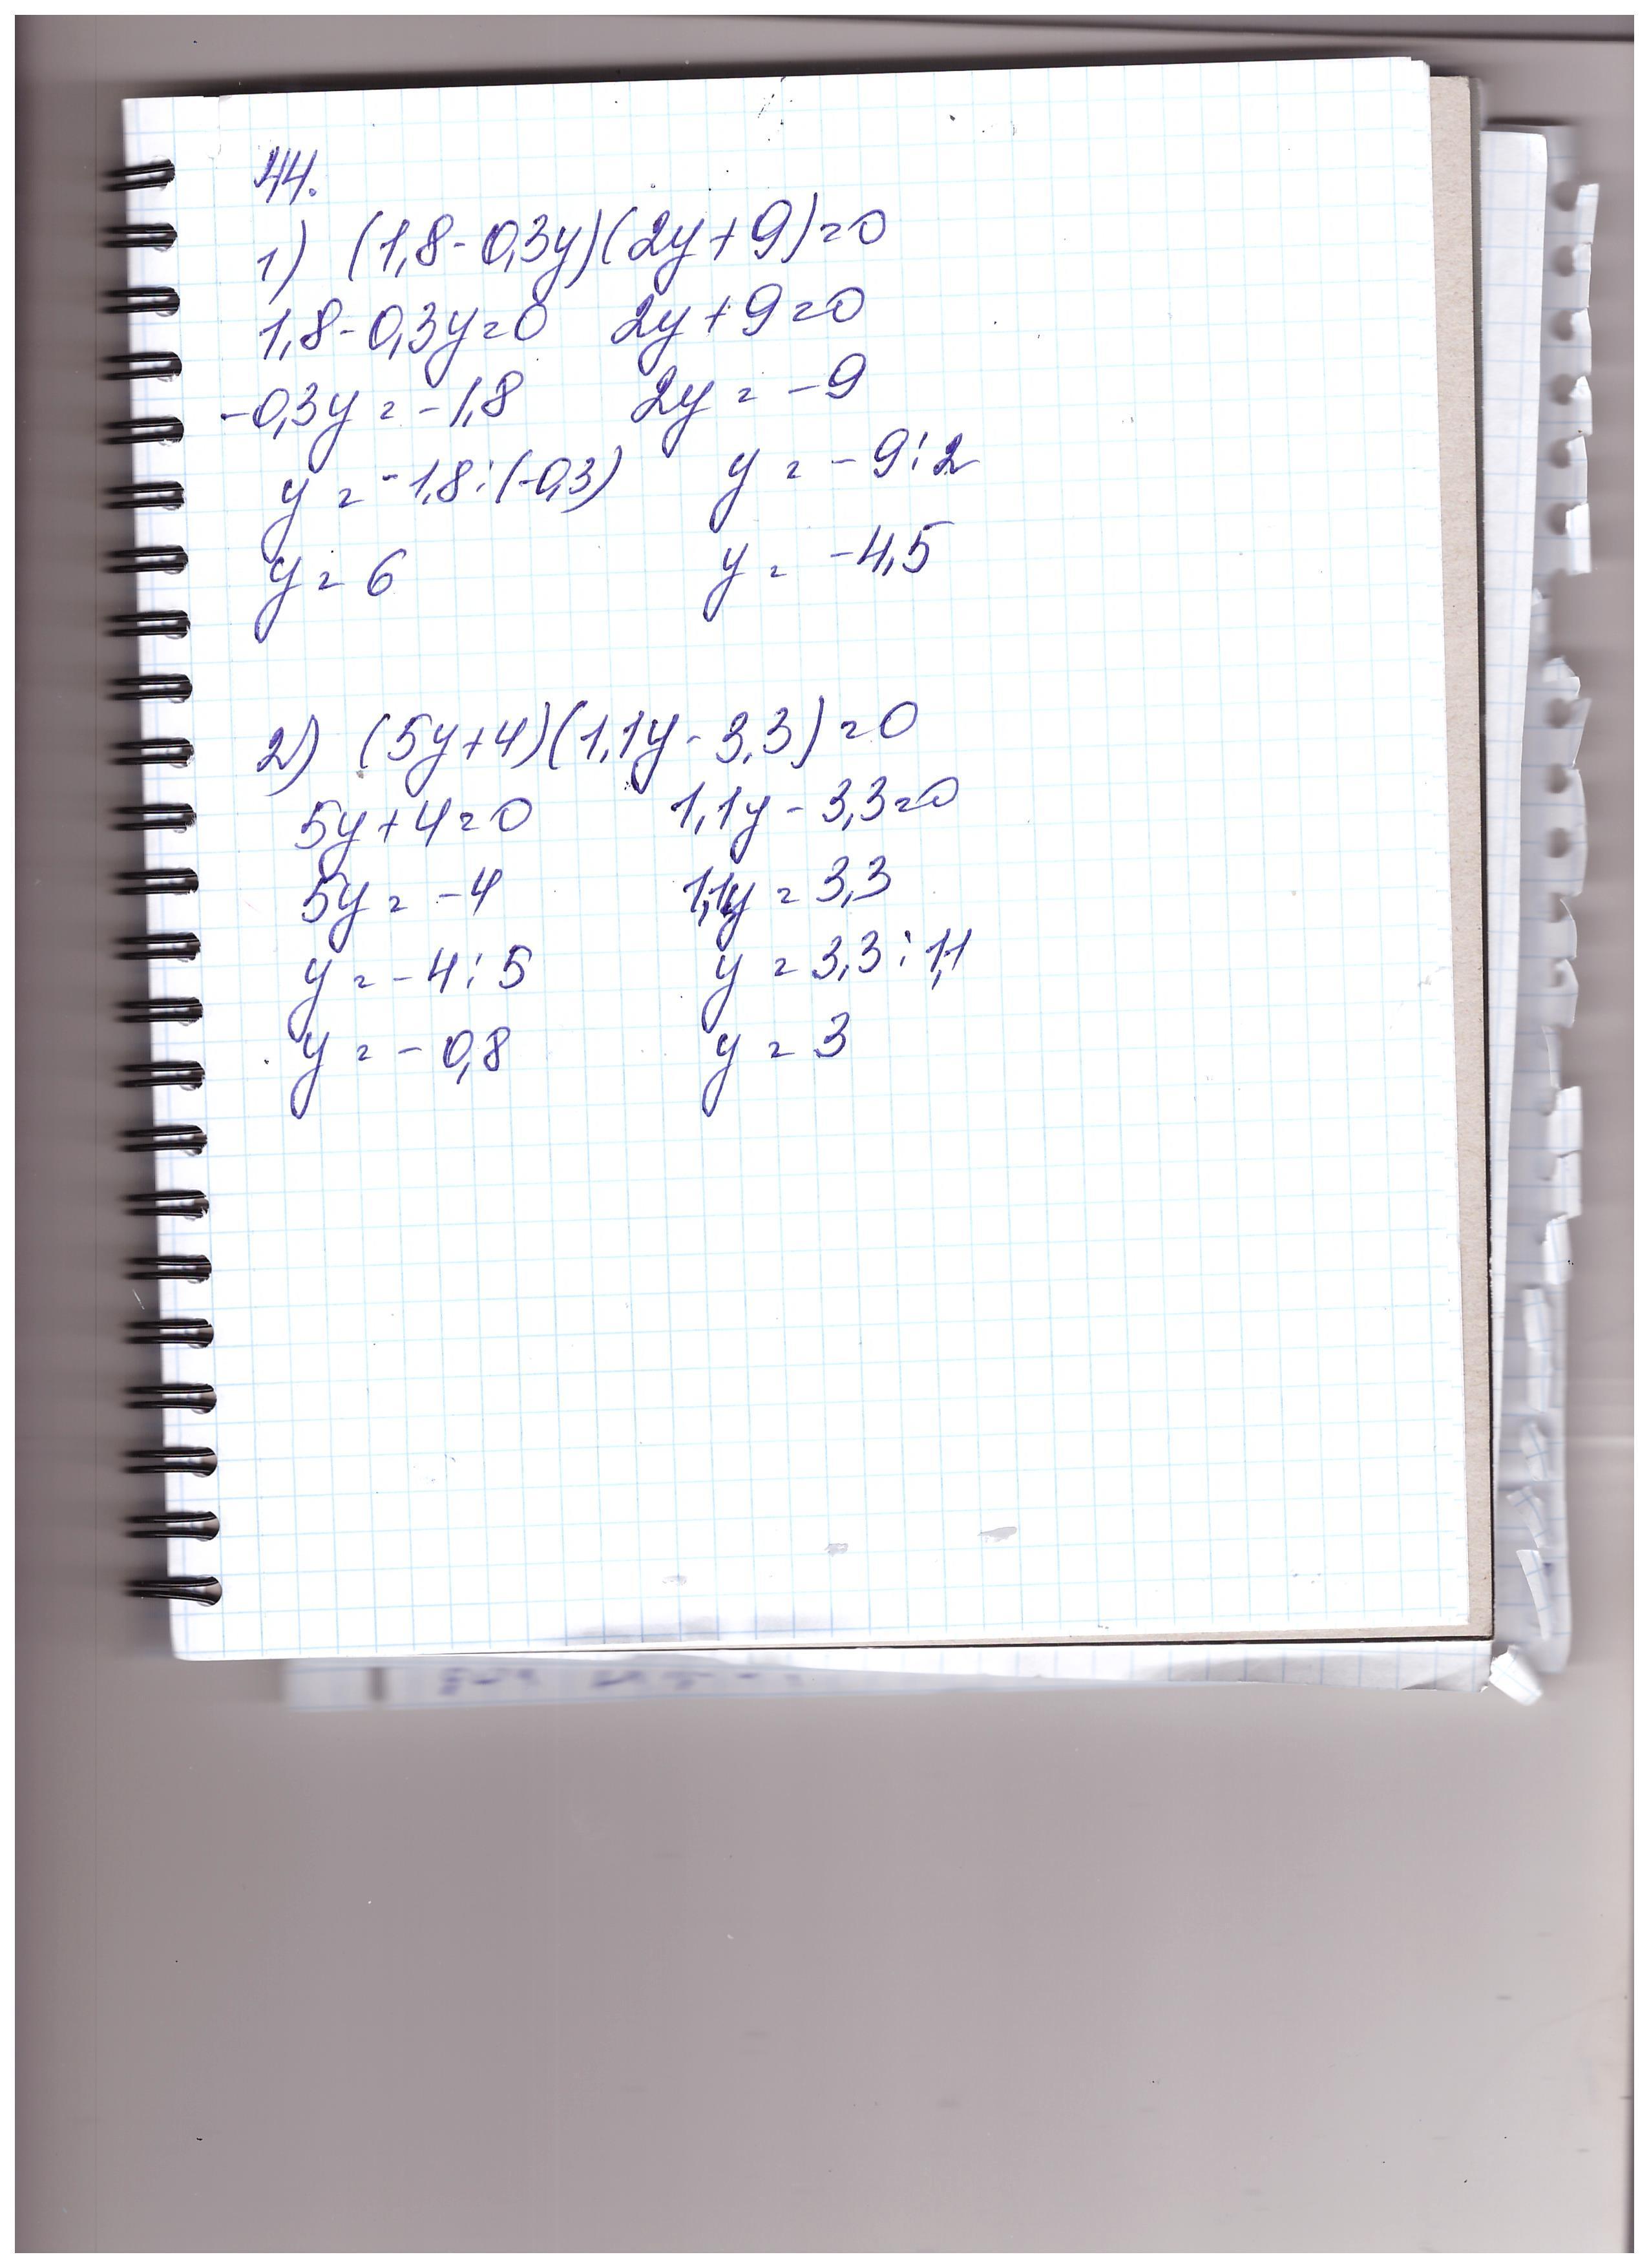 44.
1) (1,8-0,3y)(2y+9)=0
1,8-0,3y=0 2y+9=0
-0,3y=-1,8 2y=-9
y=-1,8:(-0,3) y=-9:2
y=6 y=-4,5
2) (5y+4)(1,1y-3,3)=0
5y+4=0 1,1y-3,3=0
5y=-4 1,1y=3,3
y=-4:5 y=3,3:1,1
y=-0,8 y=3